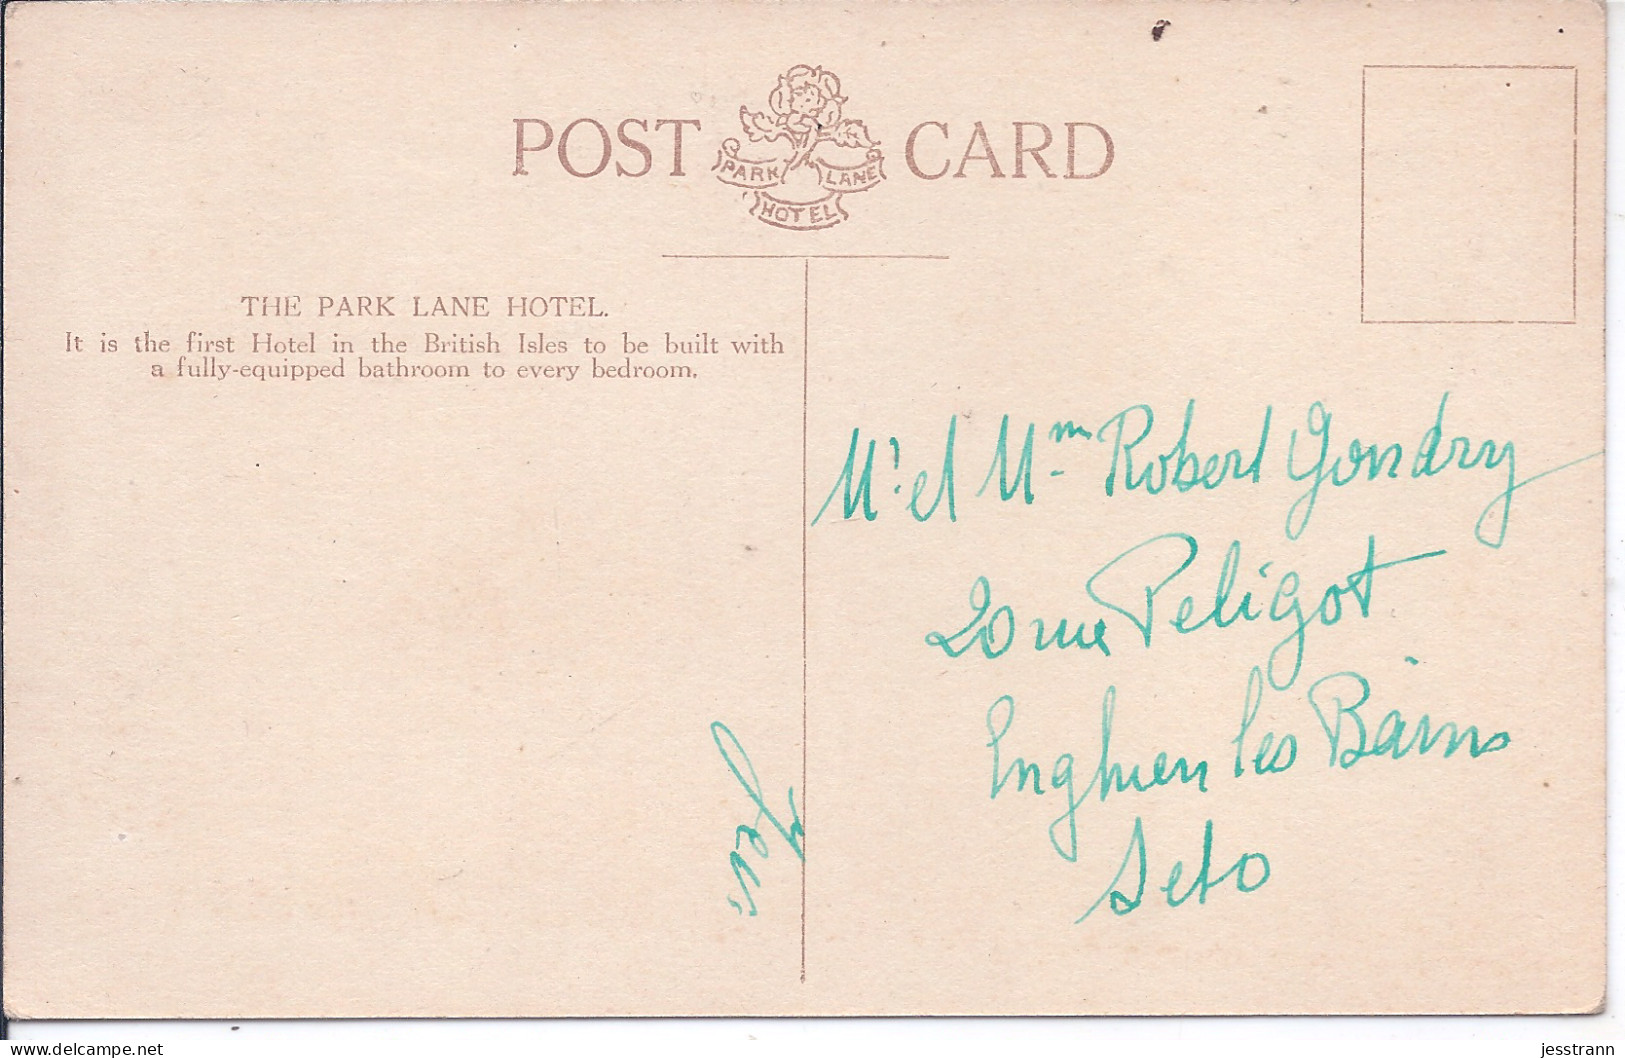 POST CARD
PARK LANE
HOTEL
THE PARK LANE HOTEL.
It is the first Hotel in the British Isles to be built with
a fully-equipped bathroom to every bedroom.
Mr et Mme Robert Gondry
20 rue Peligot
Enghien les Bains
Seto
delcampe.net
jesstrann